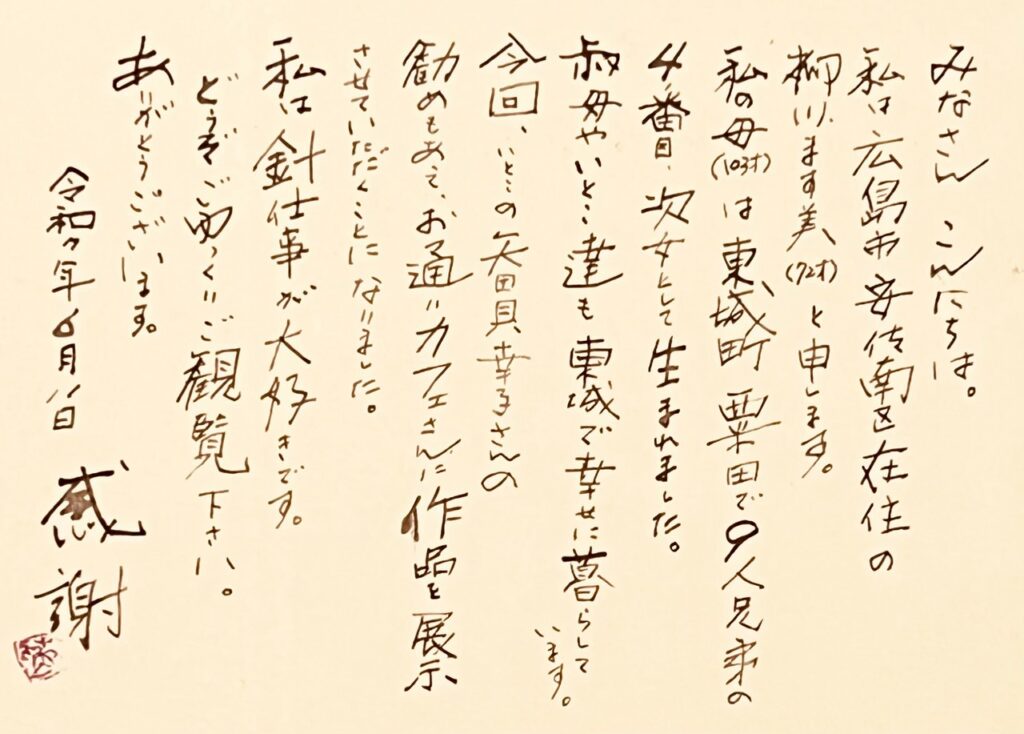 みなさん こんにちは。
私は広島市安佐南区在住の
柳川ます美(72才)と申します。
私の母(103才)は東城町粟田で9人兄弟の
4番目、次女として生まれました。
叔母やいとこ達も東城で幸せに暮らして
います。
今回、いとこの矢田貝幸子さんの
勧めもあって、お通りカフェさんに作品を展示
させていただくことになりました。
私は針仕事が大好きです。
どうぞごゆっくりご観覧下さい。
ありがとうございます。
令和 年6月 日 感謝